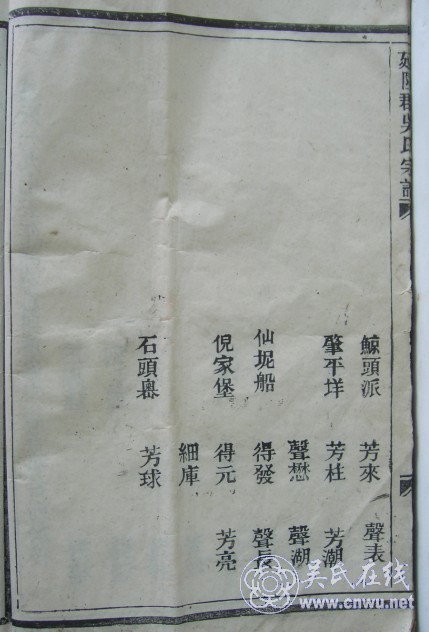 延陵郡吳氏宗譜
鯨頭派 芳來 聲表
肇平垟 芳柱 芳潮
聲懋 聲湖
仙坭船 得發 聲長
倪家堡 得元 芳亮
細庫
石頭嶴 芳球
吴氏在线
www.cnwu.net